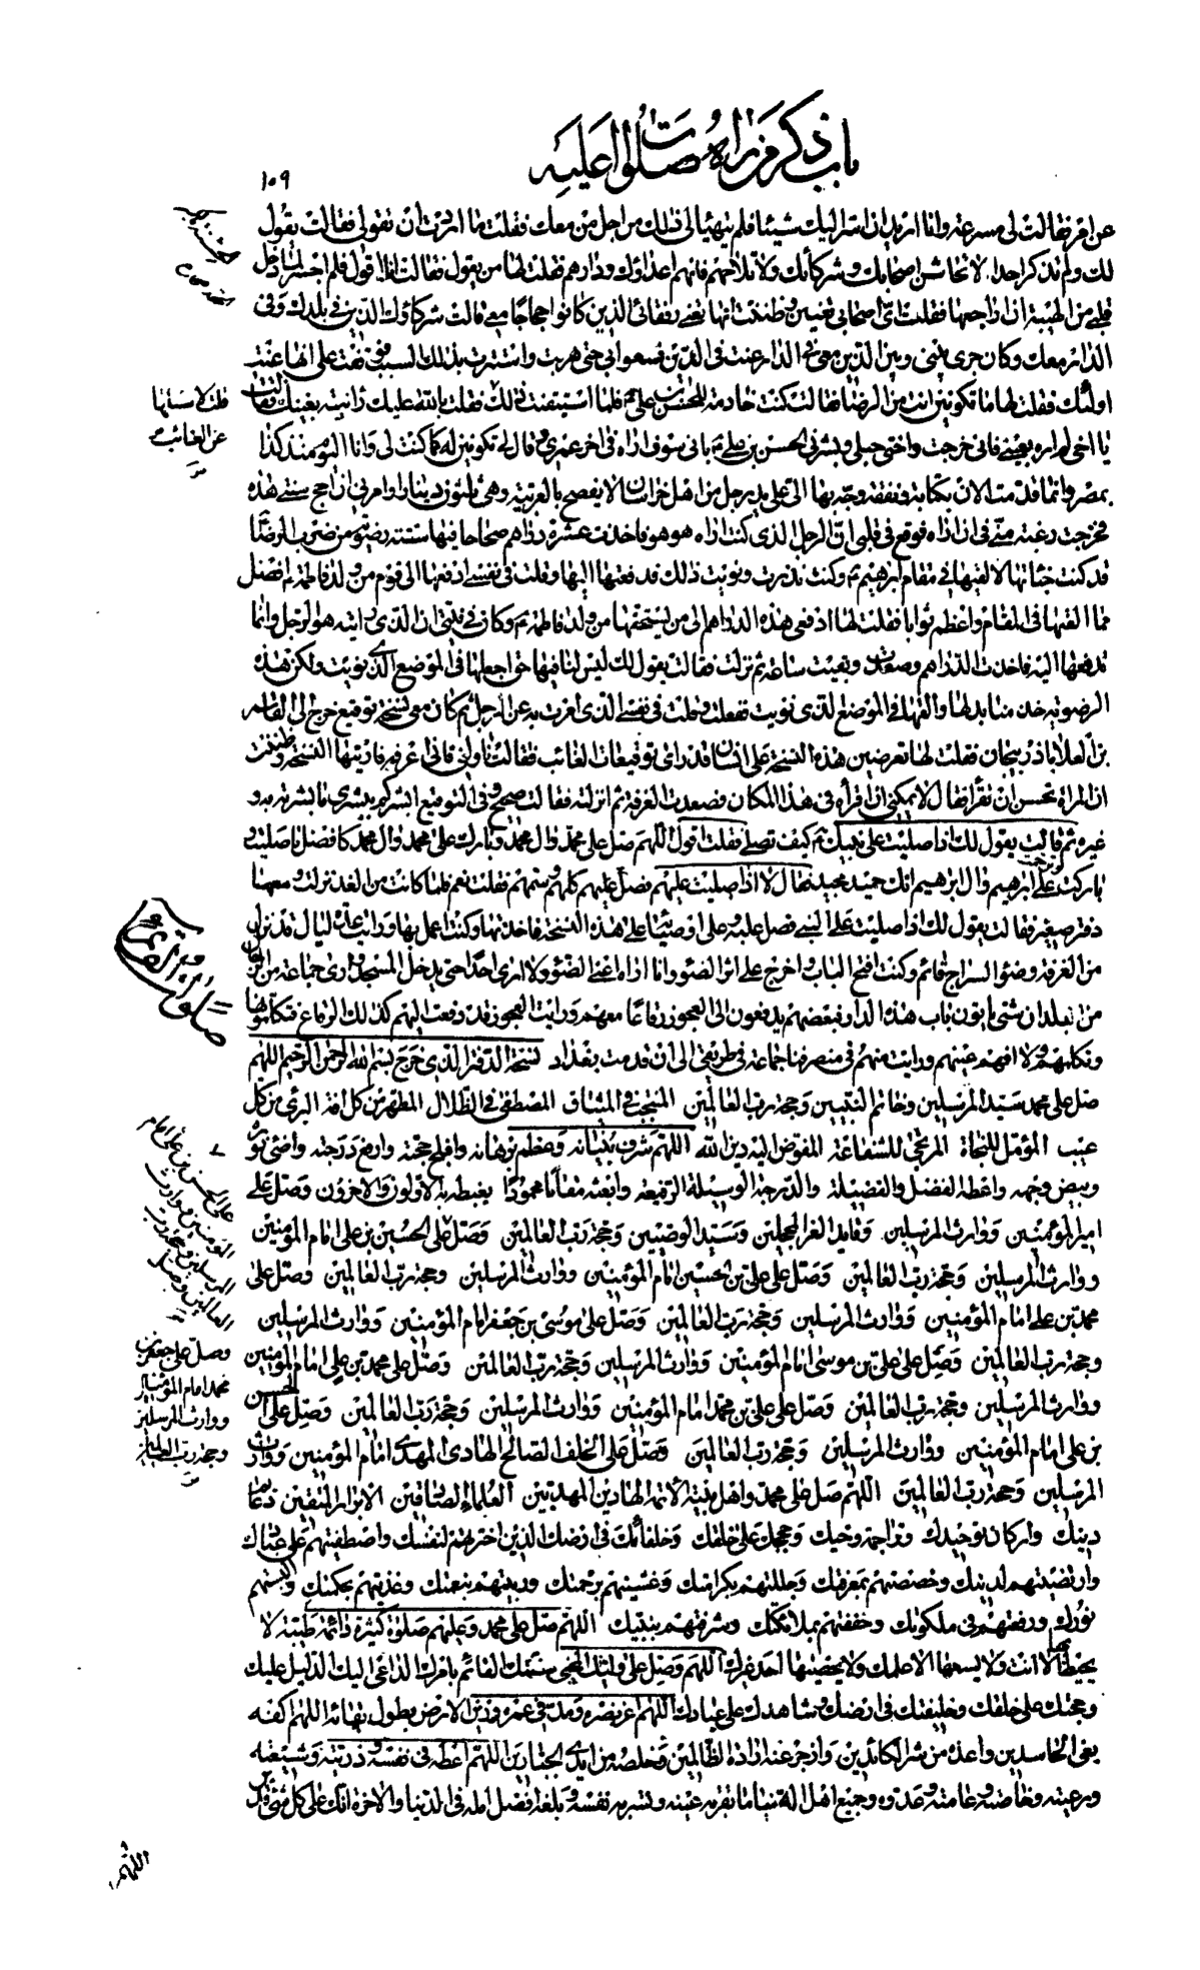 باب ذكر من رآه صلوات الله عليه
١٠٩
عن امر فقالت لى مسرعة وانا اريد ان اسر اليك شيئا فلم يتهيأ لى ذلك من اجل من معك فقلت ما اردت ان تقولى فقالت يقول
لك ولم تذكر احدا لا تخاشن اصحابك وشركائك ولا تلاحهم فانهم اعداؤك ودارهم فقلت لها من يقول فقالت انا اقول فلم اجسر لما دخل
قلبى من الهيبة ان اراجعها فقلت اى اصحابى تعنين وظننت انها تعنى رفقائى الذين كانوا حجاجا معى قالت شركاؤك الذين فى بلدك وفى
الدار معك وكان جرى بينى وبين الذين معى فى الدار عنت فى الدين فسعوا بى حتى هربت واستترت بذلك السبب فوقفت على انها عنت
اولئك فقلت لها ما تكونين انت من الرضا فقالت كنت خادمة للحسن بن على فلما استيقنت ذلك قلت بالله عليك رأيته بعينك فقالت
يا اخى لم اره بعينى فانى خرجت واختى حبلى وبشرنى الحسن بن على بانى سوف اراه فى آخر عمرى وقال لى تكونين له كما كنت لى وانا اليوم منذ كذا
بمصر وانما قدمت الآن بكتابة ونفقة وجه بها الى على يد رجل من اهل خراسان لا يفصح بالعربية وهى ثلثون دينارا وامرنى ان احج سنتى هذه
فخرجت رغبة منى فى ان اراه فوقع فى قلبى ان الرجل الذى كنت اراه هو هو فاخذت عشرة دراهم صحاحا فيها ستة رضوية من ضرب الرضا
قد كنت خبأتها لالقيها فى مقام ابرهيم وكنت نذرت ونويت ذلك فدفعتها اليها وقلت فى نفسى ادفعها الى قوم من ولد فاطمة افضل
مما القيها فى المقام واعظم ثوابا فقلت لها ادفعى هذه الدراهم الى من يستحقها من ولد فاطمة وكان فى نيتى ان الذى رايته هو الرجل وانما
تدفعها اليه فاخذت الدراهم وصعدت وبقيت ساعة ثم نزلت فقالت يقول لك ليس لنا فيها حق اجعلها فى الموضع الذى نويت ولكن هذه
الرضوية خذ منا بدلها والقها فى الموضع الذى نويت ففعلت وقلت فى نفسى الذى امرت به عن الرجل ثم كان معى نسخة توقيع خرج الى القاسم
بن العلا باذربيجان فقلت لها تعرضين هذه النسخة على انسان قد راى توقيعات الغائب فقالت ناولنى فانى اعرفه فاريتها النسخة وظننت
ان المراة تحسن ان تقرأ فقال لا يمكننى ان اقرأه فى هذا المكان فصعدت الغرفة ثم انزلته فقالت صحيح وفى التوقيع ابشركم ببشرى ما بشرته به و
غيره ثم قالت يقول لك اذا صليت على نبيك كيف تصلى فقلت اقول اللهم صل على محمد وال محمد وبارك على محمد وال محمد كافضل ما صليت و
باركت وترحمت على ابرهيم وال ابرهيم انك حميد مجيد فقال لا اذا صليت عليهم فصل عليهم كلهم وسمهم فقلت نعم فلما كانت من الغد نزلت ومعها
دفتر صغير فقالت يقول لك اذا صليت على النبى فصل عليه وعلى اوصيائه على هذه النسخة فاخذتها وكنت اعمل بها ورايت عدة ليال قد نزل
من الغرفة وضوء السراج قائم وكنت افتح الباب واخرج على اثر الضوء وانا اراه اعنى الضوء ولا ارى احدا حتى يدخل المسجد وارى جماعة من الرجال
من البلدان شتى ياتون باب هذه الدار فبعضهم يدفعون الى العجوز رقاعا معهم ورايت العجوز قد دفعت اليهم كذلك الرقاع فتكلمونها
وتكلمهم ولا افهم عنهم ورايت منهم فى منصرفنا جماعة فى طريقى الى ان قدمت بغداد نسخة الدفتر الذى خرج بسم الله الرحمن الرحيم اللهم
صل على محمد سيد المرسلين وخاتم النبيين وحجة رب العالمين المنتجب فى الميثاق المصطفى فى الظلال المطهر من كل آفة البرئ من كل
عيب المؤمل للنجاة المرتجى للشفاعة المفوض اليه دين الله اللهم شرف بنيانه وعظم برهانه وافلج حجته وارفع درجته واضئ نوره
وبيض وجهه واعطه الفضل والفضيلة والدرجة الوسيلة الرفيعة وابعثه مقاما محمودا يغبطه به الاولون والآخرون وصل على
امير المؤمنين ووارث المرسلين وقايد الغر المحجلين وسيد الوصيين وحجة رب العالمين وصل على الحسين بن على امام المؤمنين
ووارث المرسلين وحجة رب العالمين وصل على على بن الحسين امام المؤمنين ووارث المرسلين وحجة رب العالمين وصل على
محمد بن على امام المؤمنين ووارث المرسلين وحجة رب العالمين وصل على موسى بن جعفر امام المؤمنين ووارث المرسلين
وحجة رب العالمين وصل على على بن موسى امام المؤمنين ووارث المرسلين وحجة رب العالمين وصل على محمد بن على امام المؤمنين
ووارث المرسلين وحجة رب العالمين وصل على على بن محمد امام المؤمنين ووارث المرسلين وحجة رب العالمين وصل على الحسن
بن على امام المؤمنين ووارث المرسلين وحجة رب العالمين وصل على الخلف الصالح الهادى المهدى امام المؤمنين ووارث
المرسلين وحجة رب العالمين اللهم صل على محمد واهل بيته الائمة الهادين المهديين العلماء الصادقين الابرار المتقين دعائم
دينك واركان توحيدك وتراجمة وحيك وحججك على خلقك وخلفائك فى ارضك الذين اخترتهم لنفسك واصطفيتهم على عبادك
وارتضيتهم لدينك وخصصتهم بمعرفتك وجللتهم بكرامتك وغشيتهم برحمتك وربيتهم بنعمتك وغذيتهم بحكمتك والبستهم
نورك ورفعتهم فى ملكوتك وحففتهم بملائكتك وشرفتهم بنبيك اللهم صل على محمد وعليهم صلوة كثيرة دائمة طيبة لا
يحيط بها الا انت ولا يسعها الا علمك ولا يحصيها احد غيرك اللهم وصل على وليك المحيى سنتك القائم بامرك الداعى اليك الدليل عليك
وحجتك على خلقك وخليفتك فى ارضك وشاهدك على عبادك اللهم اعز نصره ومد فى عمره وزين الارض بطول بقائه اللهم اكفه
بغى الحاسدين واعذه من شر الكائدين وازجر عنه ارادة الظالمين وخلصه من ايدى الجبارين اللهم اعطه فى نفسه وذريته وشيعته
ورعيته وخاصته وعامته وعدوه وجميع اهل الدنيا ما تقر به عينه وتسر به نفسه وبلغه افضل امله فى الدنيا والآخرة انك على كل شئ قدير
قلت لاسئلنها
عن الغائب
وصل على الحسن بن على امام
المؤمنين ووارث
المرسلين وحجة رب
العالمين وصل
وصل على جعفر بن
محمد امام المؤمنين
ووارث المرسلين
وحجة رب العالمين
اللهم